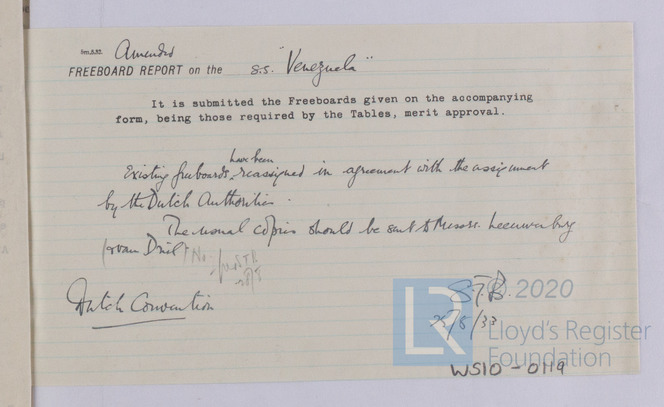 Amended
FREEBOARD REPORT on the s.s. "Venezuela"
It is submitted the Freeboards given on the accompanying
form, being those required by the Tables, merit approval.
Existing freeboards have been reassigned in agreement with the assignment
by the Dutch Authorities.
The usual copies should be sent to Messrs. Leeuwenburg
van Driel
No.
Dutch Convention
S.T.B.
25/8/33
© 2020
LR
Lloyd's Register
Foundation
WS10-0119